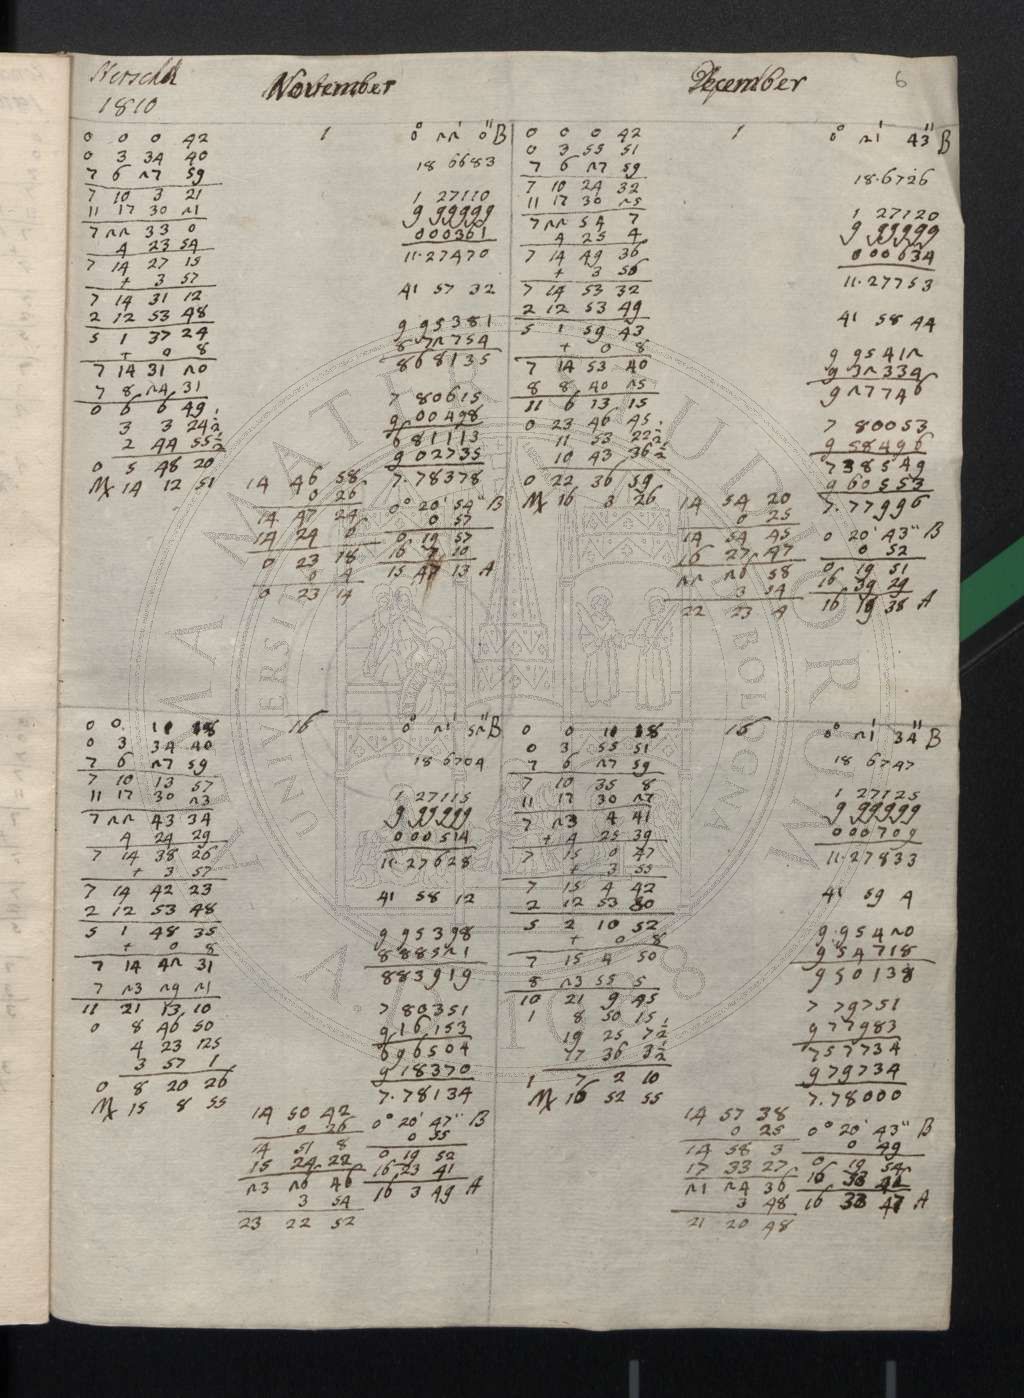 Herschel
1810
November
December
6
1
0 0 0 42
0 3 34 40
7 6 27 59
7 10 3 21
11 17 30 21
7 22 33 0
4 23 54
7 14 27 15
+ 3 57
7 14 31 12
2 12 53 48
5 1 37 24
+ 0 8
7 14 31 20
7 8 24 31
0 6 6 49
3 3 24½
2 44 55½
0 5 48 20
♏ 14 12 51
0° 22' 0" B
18 6683
1 27110
9 99999
000361
11.27470
41 57 32
9 95381
8 72754
868135
7 80615
9 00498
681113
9 02735
7.78378
14 46 58
0 26
14 47 24
14 24 6
0 23 18
0 4
0 23 14
0° 20' 54" B
0 57
0 19 57
16 7 10
15 47 13 A
1
0 0 0 42
0 3 55 51
7 6 27 59
7 10 24 32
11 17 30 25
7 22 54 7
4 25 4
7 14 49 36
+ 3 56
7 14 53 32
2 12 53 49
5 1 59 43
+ 0 8
7 14 53 40
8 8 40 25
11 6 13 15
0 23 46 45
11 53 22½
10 43 36½
0 22 36 59
♏ 16 3 26
0° 21' 43" B
18.6726
1 27120
9 99999
000634
11.27753
41 58 44
9 95412
9 32334
927746
7 80053
9 58496
738549
9 60553
7.77996
14 54 20
0 25
14 54 45
16 27 47
22 26 58
3 54
22 23 4
0 20' 43" B
0 52
0 19 51
16 39 29
16 19 38 A
16
0 0 11 18
0 3 34 40
7 6 27 59
7 10 13 57
11 17 30 23
7 22 43 34
4 24 29
7 14 38 26
+ 3 57
7 14 42 23
2 12 53 48
5 1 48 35
+ 0 8
7 14 42 31
7 23 29 21
11 21 13 10
0 8 46 50
4 23 25
3 57 1
0 8 20 26
♏ 15 8 55
0° 21' 52" B
18 6704
1 27115
9 99999
000514
11.27628
41 58 12
9 95398
8 88521
883919
7 80351
9 16153
696504
9 18370
7.78134
14 50 42
0 26
14 51 8
15 24 22
23 26 46
3 54
23 22 52
0° 20' 47" B
0 55
0 19 52
16 23 41
16 3 49 A
16
0 0 11 18
0 3 55 51
7 6 27 59
7 10 35 8
11 17 30 27
7 23 4 41
+ 4 25 39
7 15 0 47
+ 3 55
7 15 4 42
2 12 53 50
5 2 10 52
+ 0 8
7 15 4 50
8 23 55 5
10 21 9 45
1 8 50 15
19 25 7½
17 36 3½
1 7 2 10
♏ 16 52 55
0° 21' 34" B
18 6747
1 27125
9 99999
000709
11.27833
41 59 4
9.95420
9 54718
950138
7 79751
9 77983
757734
9 79734
7.78000
14 57 38
0 25
14 58 3
17 33 27
21 24 36
3 48
21 20 48
0° 20' 43" B
0 49
0 19 54
16 33 47 A